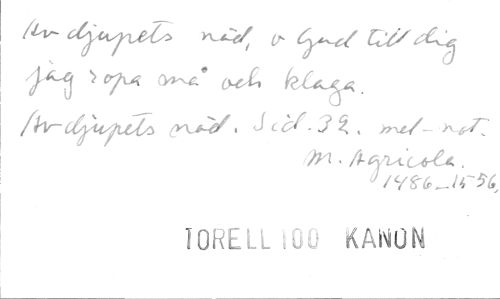 Av djupets nöd, o Gud till dig
jag ropa må och klaga.
Av djupets nöd. Sid. 39. mel-not.
M. Agricola.
1486-1556.
TORELL 100 KANON